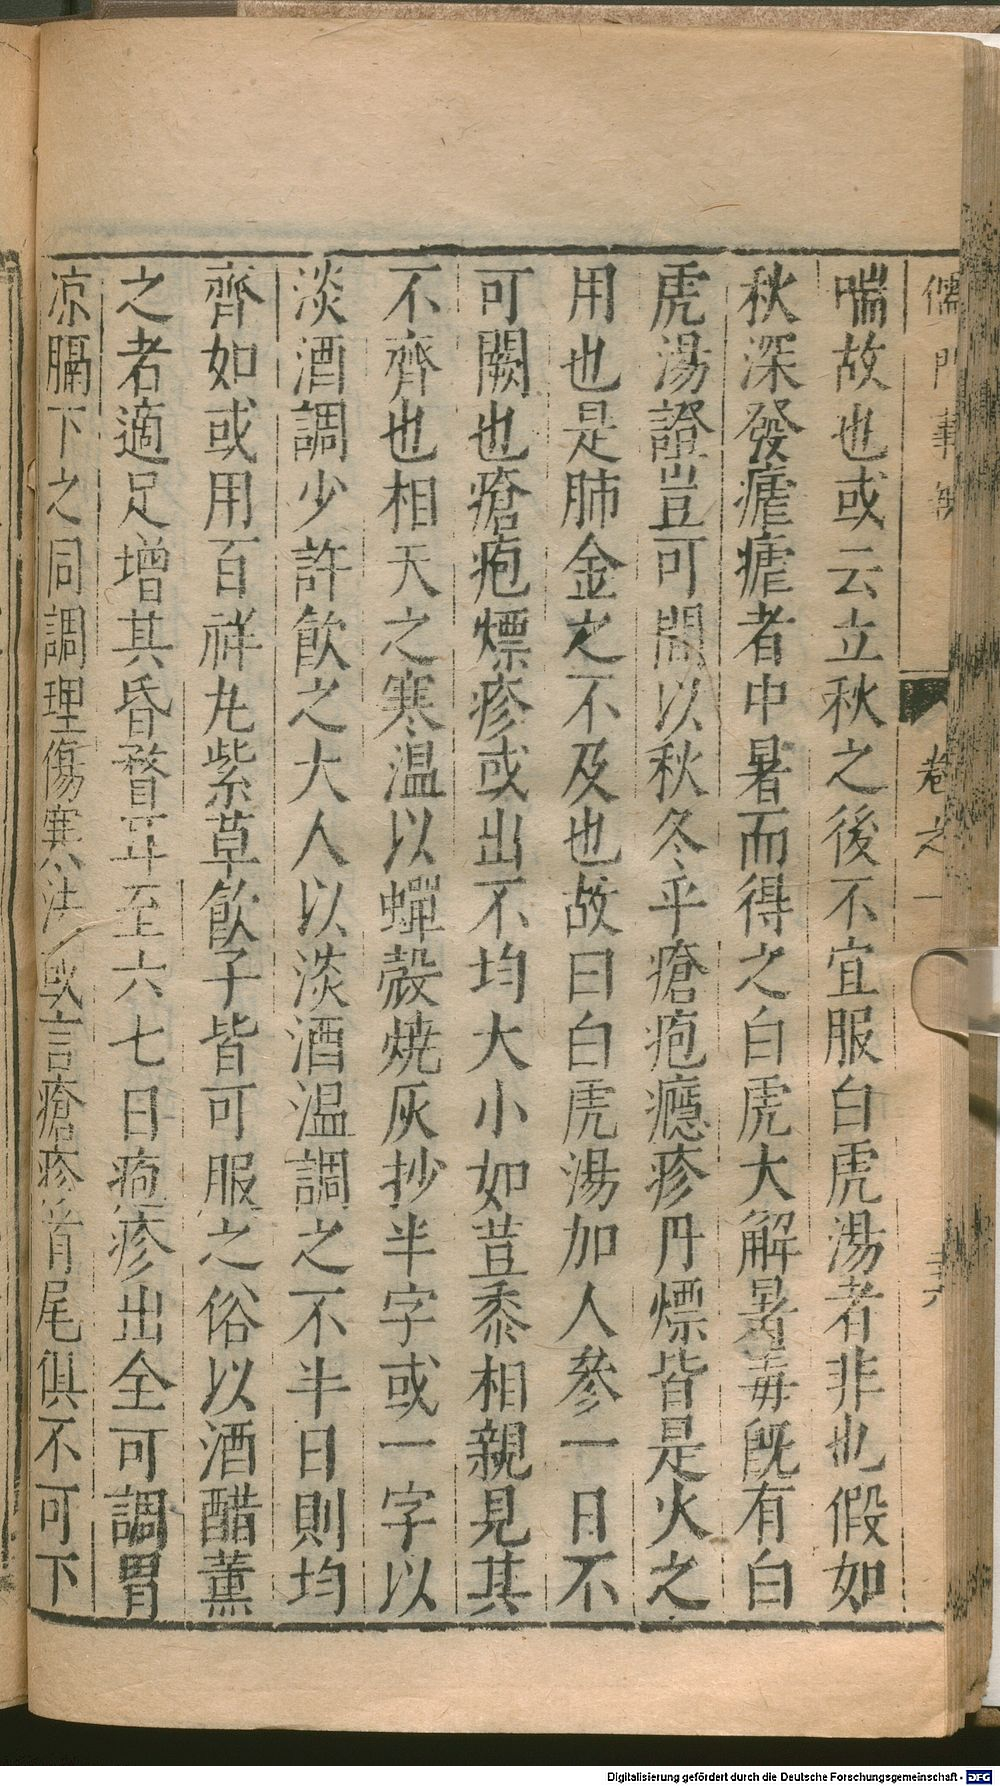 儒門事親 卷之一
喘故也或云立秋之後不宜服白虎湯者非也假如
秋深發瘧瘧者中暑而得之白虎大解暑毒既有白
虎湯證豈可間以秋冬乎瘡疱癮疹丹熛皆是火之
用也是肺金之不及也故曰白虎湯加人參一日不
可闕也瘡疱熛疹或出不均大小如荳黍相親見其
不齊也相天之寒溫以蟬殼燒灰抄半字或一字以
淡酒調少許飲之大人以淡酒溫調之不半日則均
齊如或用百祥丸紫草飲子皆可服之俗以酒醋薰
之者適足增其昏瞀耳至六七日疱疹出全可調胃
凉膈下之同調理傷寒法或言瘡疹首尾俱不可下
Digitalisierung gefördert durch die Deutsche Forschungsgemeinschaft - DFG